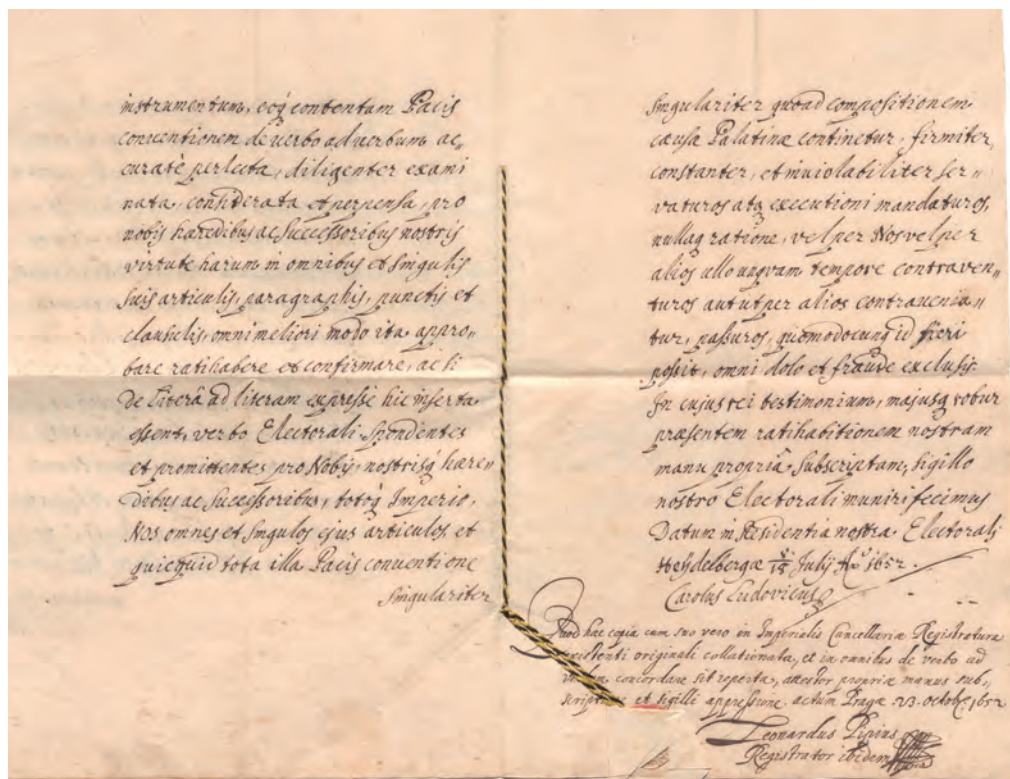 instrumentum, eoq́ contentam Pacis
conventionem de verbo ad verbum ac„
curatè perlecta, diligenter exami
nata, considerata et perpensa, pro
nobis hæredibus ac Successoribus nostris
virtute harum in omnibus et singulis
suis articulis, paragraphis, punctis et
clausulis, omni meliori modo ita appro„
bare ratihabere et confirmare, ac si
de Literâ ad literam expresse hic inserta
essent, verbo Electorali Spondentes
et promittentes pro Nobis, nostrisq́ hære„
dibus ac Successoribus, totoq́ Imperio,
Nos omnes et singulos ejus articulos, et
quicquid tota illa Pacis conventione
Singulariter
Singulariter quoad compositionem
causæ Palatinæ continetur, firmiter,
constanter, et inviolabiliter ser„
vaturos atq executioni mandaturos,
nullaq ratione, vel per Nos vel per
alios ullo unqvam tempore contraven„
turos aut ut per alios contravenia„
tur, passuros, quomodocunq id fieri
possit, omni dolo et fraude exclusis.
In cujus rei testimonium, majusq robur
præsentem ratihabitionem nostram
manu propriâ Subscriptam, sigillo
nostro Electorali muniri fecimus
Datum in Residentia nostra Electorali
Heydelbergæ 5/15 July Aº 1652.
Carolus Ludovicus
Quod hæc copia cum suo vero in Imperialis Cancellariæ Registratura
existenti originali collationata, et in omnibus de verbo ad
verbum concordare sit reperta, attestor propriæ manus sub„
scriptione et sigilli appressione. actum Pragæ 23. octobr. 1652
Leonardus Pipius
Registrator ibidem